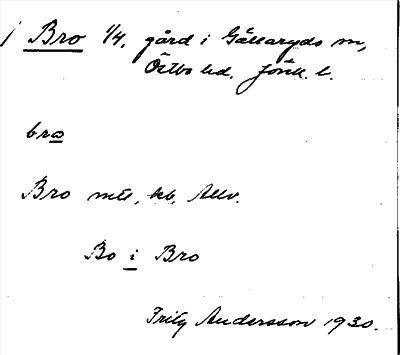 Bro 1/4, gård i Gällaryds sn,
Östbo hd. Jönk. l.
bro
Bro mtl, kb, Allv.
Bo i Bro
Fritz Andersson 1930.